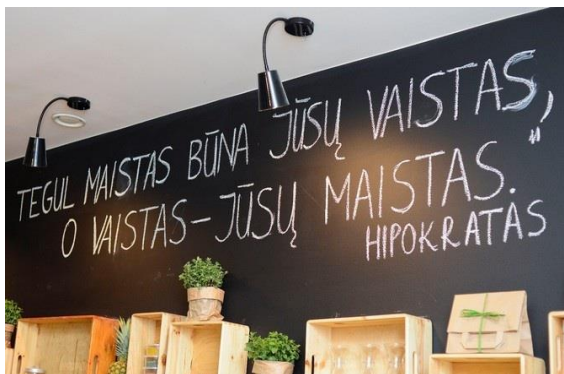 TEGUL MAISTAS BŪNA JŪSŲ VAISTAS,
O VAISTAS – JŪSŲ MAISTAS."
HIPOKRATAS